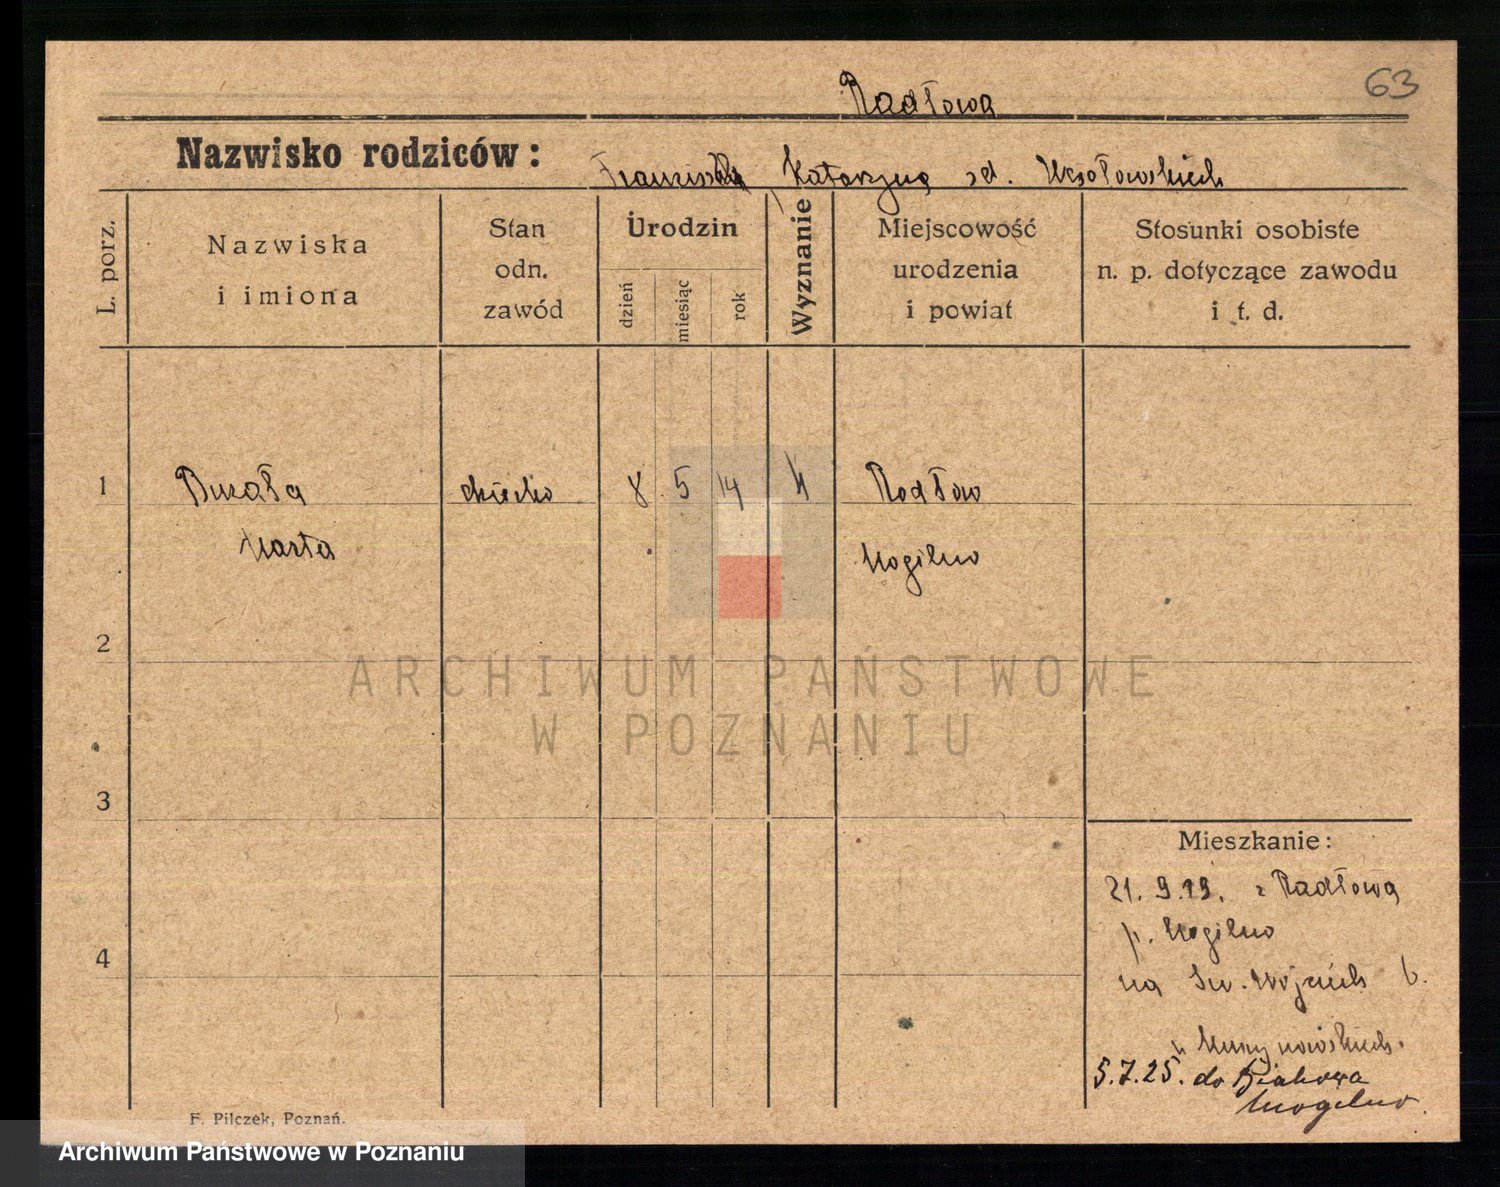 63
Radłowa
Nazwisko rodziców:
Franciszka, Katarzyna zd. Wesołowskich
L. porz.
Nazwiska
i imiona
Stan
odn.
zawód
Urodzin
dzień
miesiąc
rok
Wyznanie
Miejscowość
urodzenia
i powiat
Stosunki osobiste
n. p. dotyczące zawodu
i t. d.
1
dziecko 8 5 14 k Radłow
Marta
Mogilno
2
3
4
Mieszkanie:
21. 9. 19. z Radłowa
p. Mogilno
na Św. Wojciech 6.
u
5.7.25. do
Mogilno.
F. Pilczek, Poznań.
ARCHIWUM PAŃSTWOWE
W POZNANIU
Archiwum Państwowe w Poznaniu